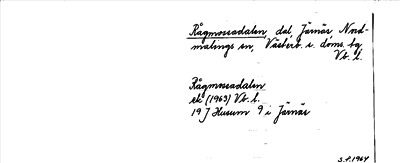 Rågmossadalen, dal, Järnäs, Nord-
malings sn, Västerb. s. doms. bg
Vb. l.
Rågmossadalen
ek (1963) Vb. l.
19 J Husum 9 i Järnäs
S.P. 1964